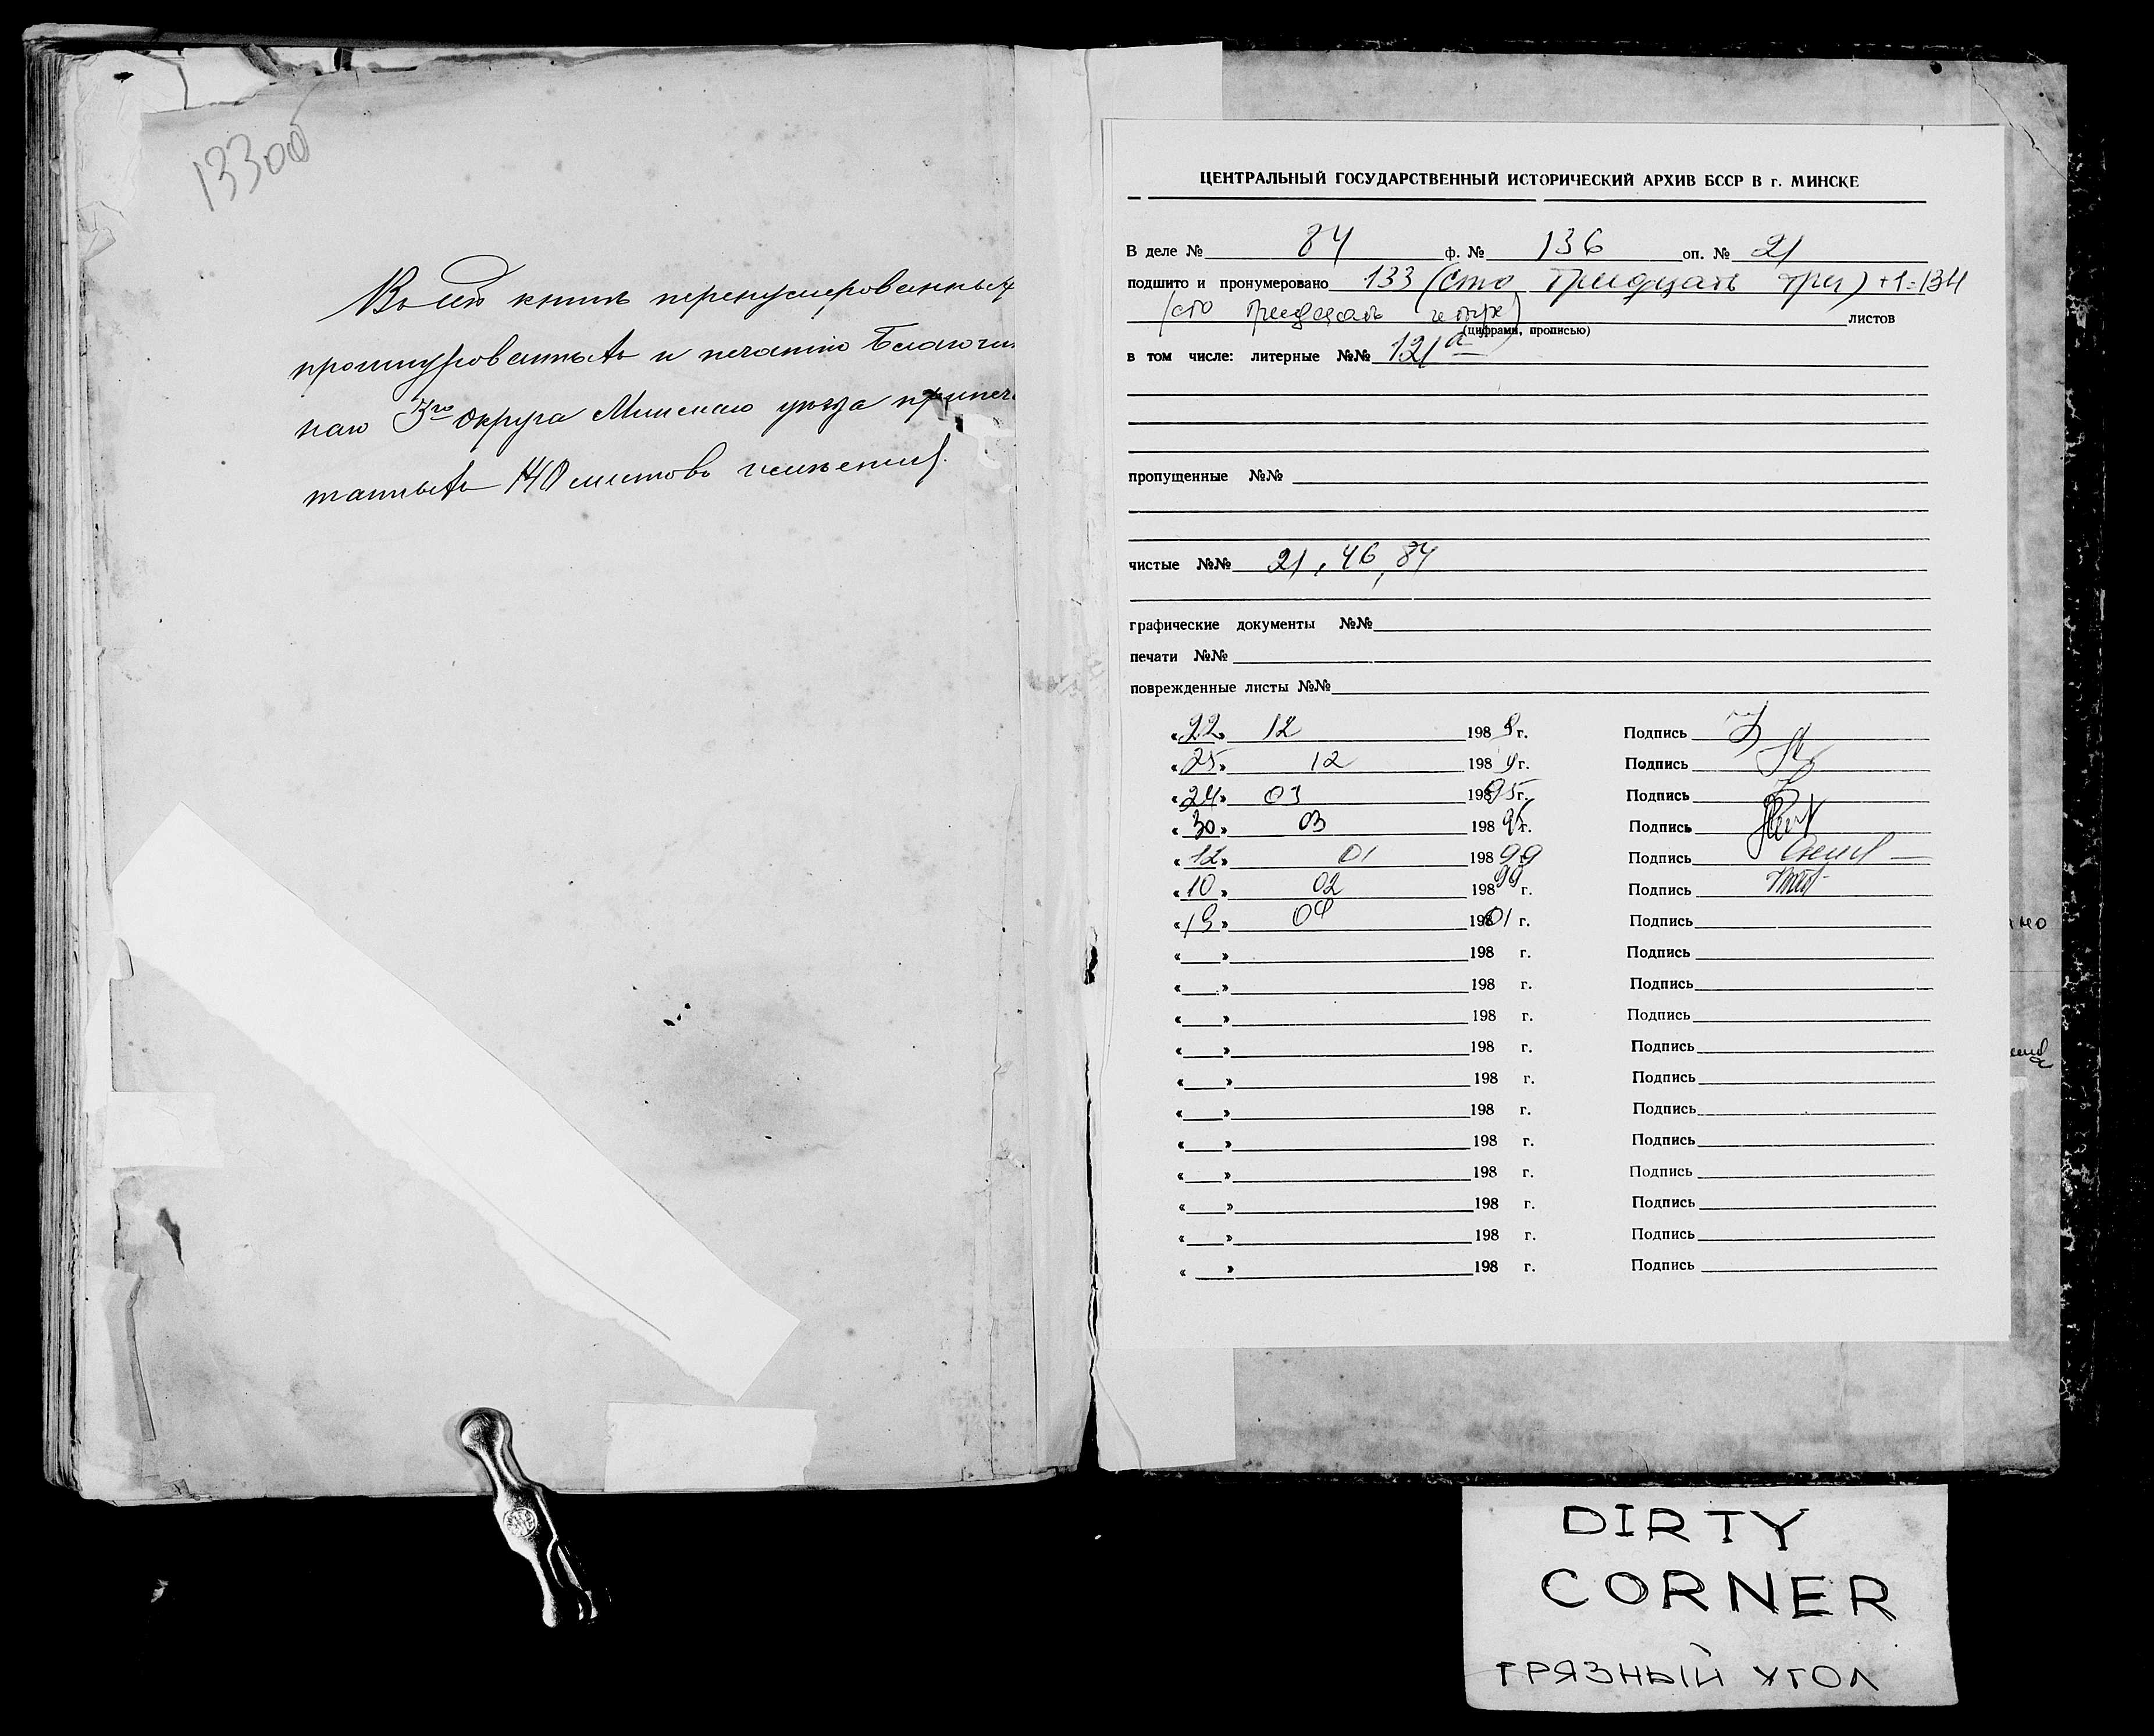 133об
Въ сей книгѣ перенумерованныхъ
прошнурованныхъ и печатію Благочин
наго 3го округа Минскаго уѣзда припеча
танныхъ 140 листовъ
ЦЕНТРАЛЬНЫЙ ГОСУДАРСТВЕННЫЙ ИСТОРИЧЕСКИЙ АРХИВ БССР В г. МИНСКЕ
В деле № 84 ф. № 136 оп. № 21
подшито и пронумеровано 133 (сто тридцать три) +1=134
(сто тридцать четыре) листов
(цифрами, прописью)
в том числе: литерные №№ 121а
пропущенные №№
чистые №№ 21, 46, 84
графические документы №№
печати №№
поврежденные листы №№
«22» 12 198 г. Подпись
«25» 12 198 г. Подпись
«24» 03 19895 г. Подпись
«30» 03 198 95 г. Подпись
«12» 01 198 99 Подпись
«10» 02 198 99 г. Подпись
«19» 04 19801 г. Подпись
« » 198 г. Подпись
« » 198 г. Подпись
« » 198 г. Подпись
« » 198 г. Подпись
« » 198 г. Подпись
« » 198 г. Подпись
« » 198 г. Подпись
« » 198 г. Подпись
« » 198 г. Подпись
« » 198 г. Подпись
« » 198 г. Подпись
DIRTY
CORNER
ГРЯЗНЫЙ УГОЛ